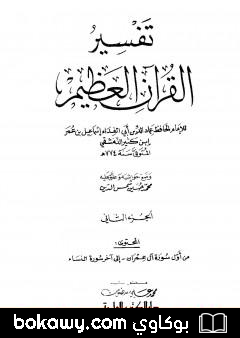 تفسير
القرآن العظيم
للإمام الحافظ عماد الدين أبي الفداء إسماعيل بن عمر
ابن كثير الدمشقي
المتوفى سنة ٧٧٤ هـ
وضع حواشيه وعلق عليه
محمد حسين شمس الدين
الجزء الثاني
المحتوى:
من أول سورة آل عمران - إلى آخر سورة النساء
دار الكتب العلمية
بوكاوي bokawy.com